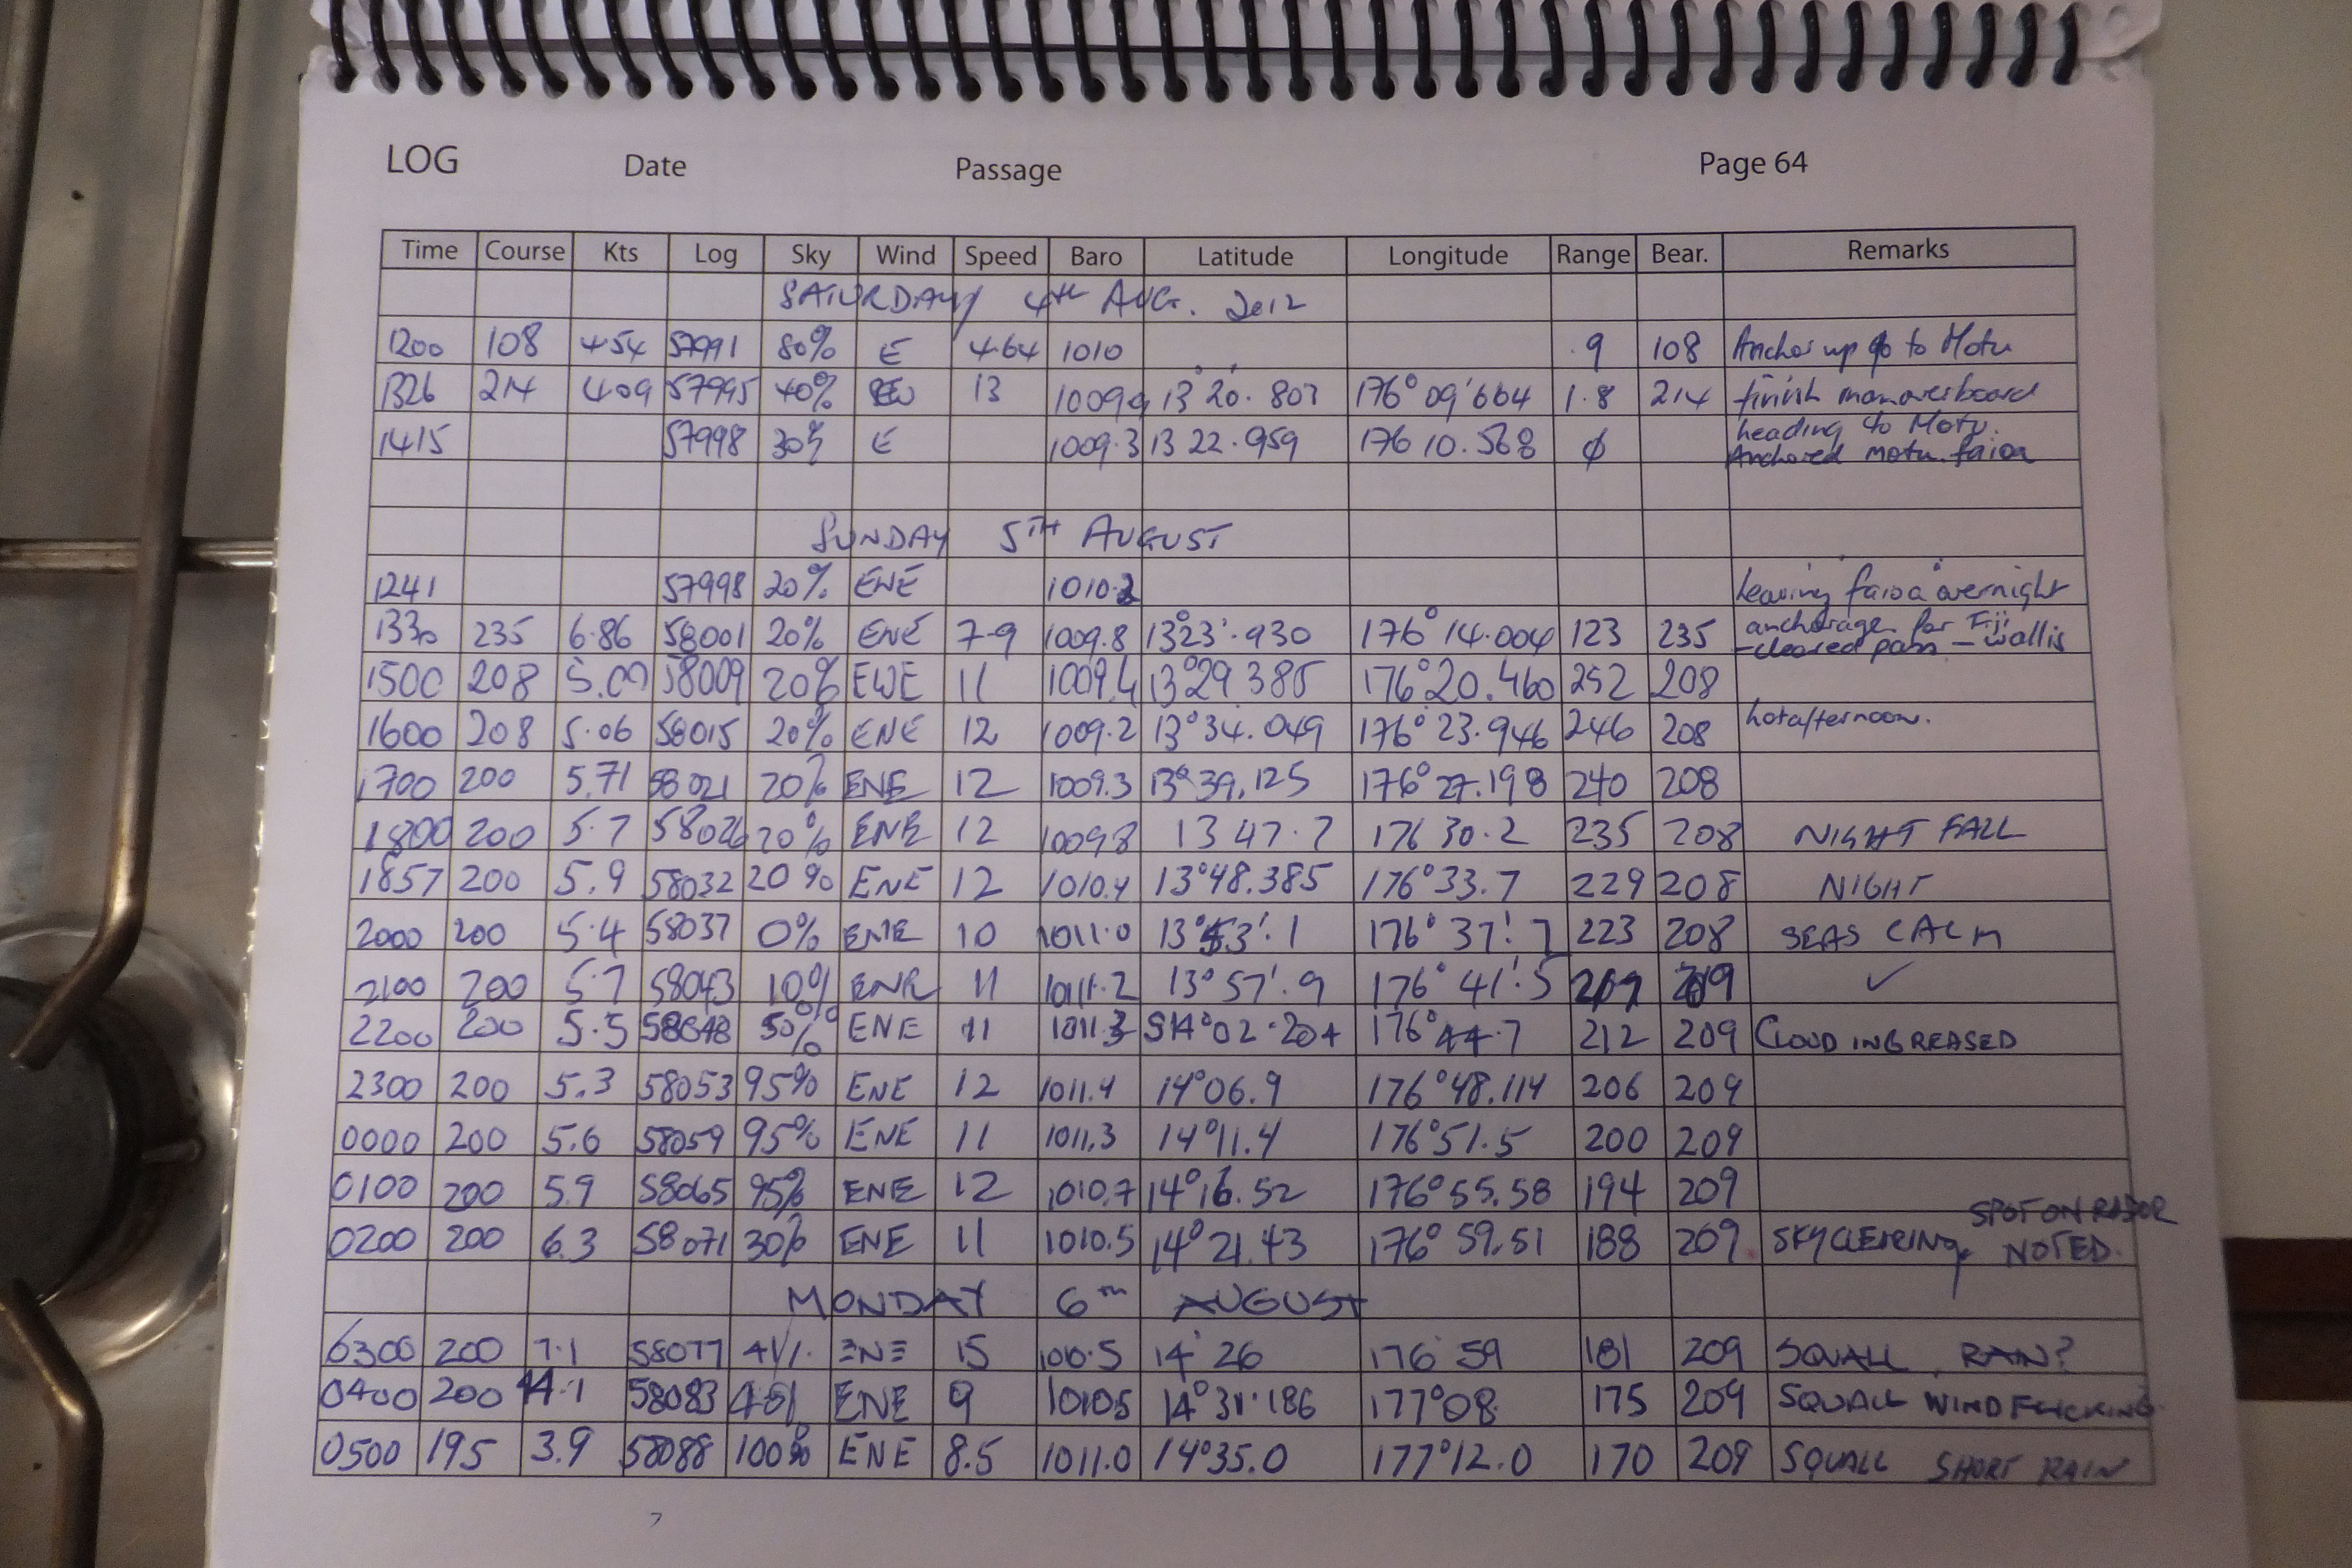 LOG Date Passage Page 64
Time Course Kts Log Sky Wind Speed Baro Latitude Longitude Range Bear. Remarks
SATURDAY 4TH AUG. 2012
1200 108 4.54 57991 80% E 4.64 1010 .9 108 Anchor up to Motu
1326 214 4.09 57995 40% 13 1009.9 13°20'.807 176°09'664 1.8 214 finish manoverboard
1415 57998 30% E 1009.3 13 22.959 176 10.568 ϕ heading to Motu.
Anchored motu faioa
SUNDAY 5TH AUGUST
1241 57998 20% ENE 1010.2 leaving faioa overnight
1330 235 6.86 58001 20% ENE 7-9 1009.8 13°23'.930 176°14.004 123 235 anchorage for Fiji
-cleared pass - wallis
1500 208 5.09 58009 20% ENE 11 1009.4 13°29.385 176°20.460 252 208
1600 208 5.06 58015 20% ENE 12 1009.2 13°34.049 176°23.946 246 208 hot afternoon.
1700 200 5.71 58021 20% ENE 12 1009.3 13°39.125 176°27.198 240 208
1800 200 5.7 58026 20% ENE 12 1009.8 13 47.7 176 30.2 235 208 NIGHT FALL
1857 200 5.9 58032 20% ENE 12 1010.4 13°48.385 176°33.7 229 208 NIGHT
2000 200 5.4 58037 0% ENE 10 1011.0 13°53'.1 176°37'.7 223 208 SEAS CALM
2100 200 5.7 58043 10% ENE 11 1011.2 13°57'.9 176°41'.5 209 ✓
2200 200 5.5 58048 50% ENE 11 1011.3 S14°02.204 176°44.7 212 209 CLOUD INCREASED
2300 200 5.3 58053 95% ENE 12 1011.4 14°06.9 176°48.114 206 209
0000 200 5.6 58059 95% ENE 11 1011.3 14°11.4 176°51.5 200 209
0100 200 5.9 58065 95% ENE 12 1010.7 14°16.52 176°55.58 194 209
0200 200 6.3 58071 30% ENE 11 1010.5 14°21.43 176°59.51 188 209 SKY CLEARING, SPOT ON RADOR
NOTED.
MONDAY 6TH AUGUST
0300 200 7.1 58077 ENE 15 1010.5 14°26 176°59 181 209 SQUALL RAIN?
0400 200 4.1 58083 ENE 9 1010.5 14°31.186 177°08 175 209 SQUALL WIND
0500 195 3.9 58088 100% ENE 8.5 1011.0 14°35.0 177°12.0 170 209 SQUALL SHORT RAIN